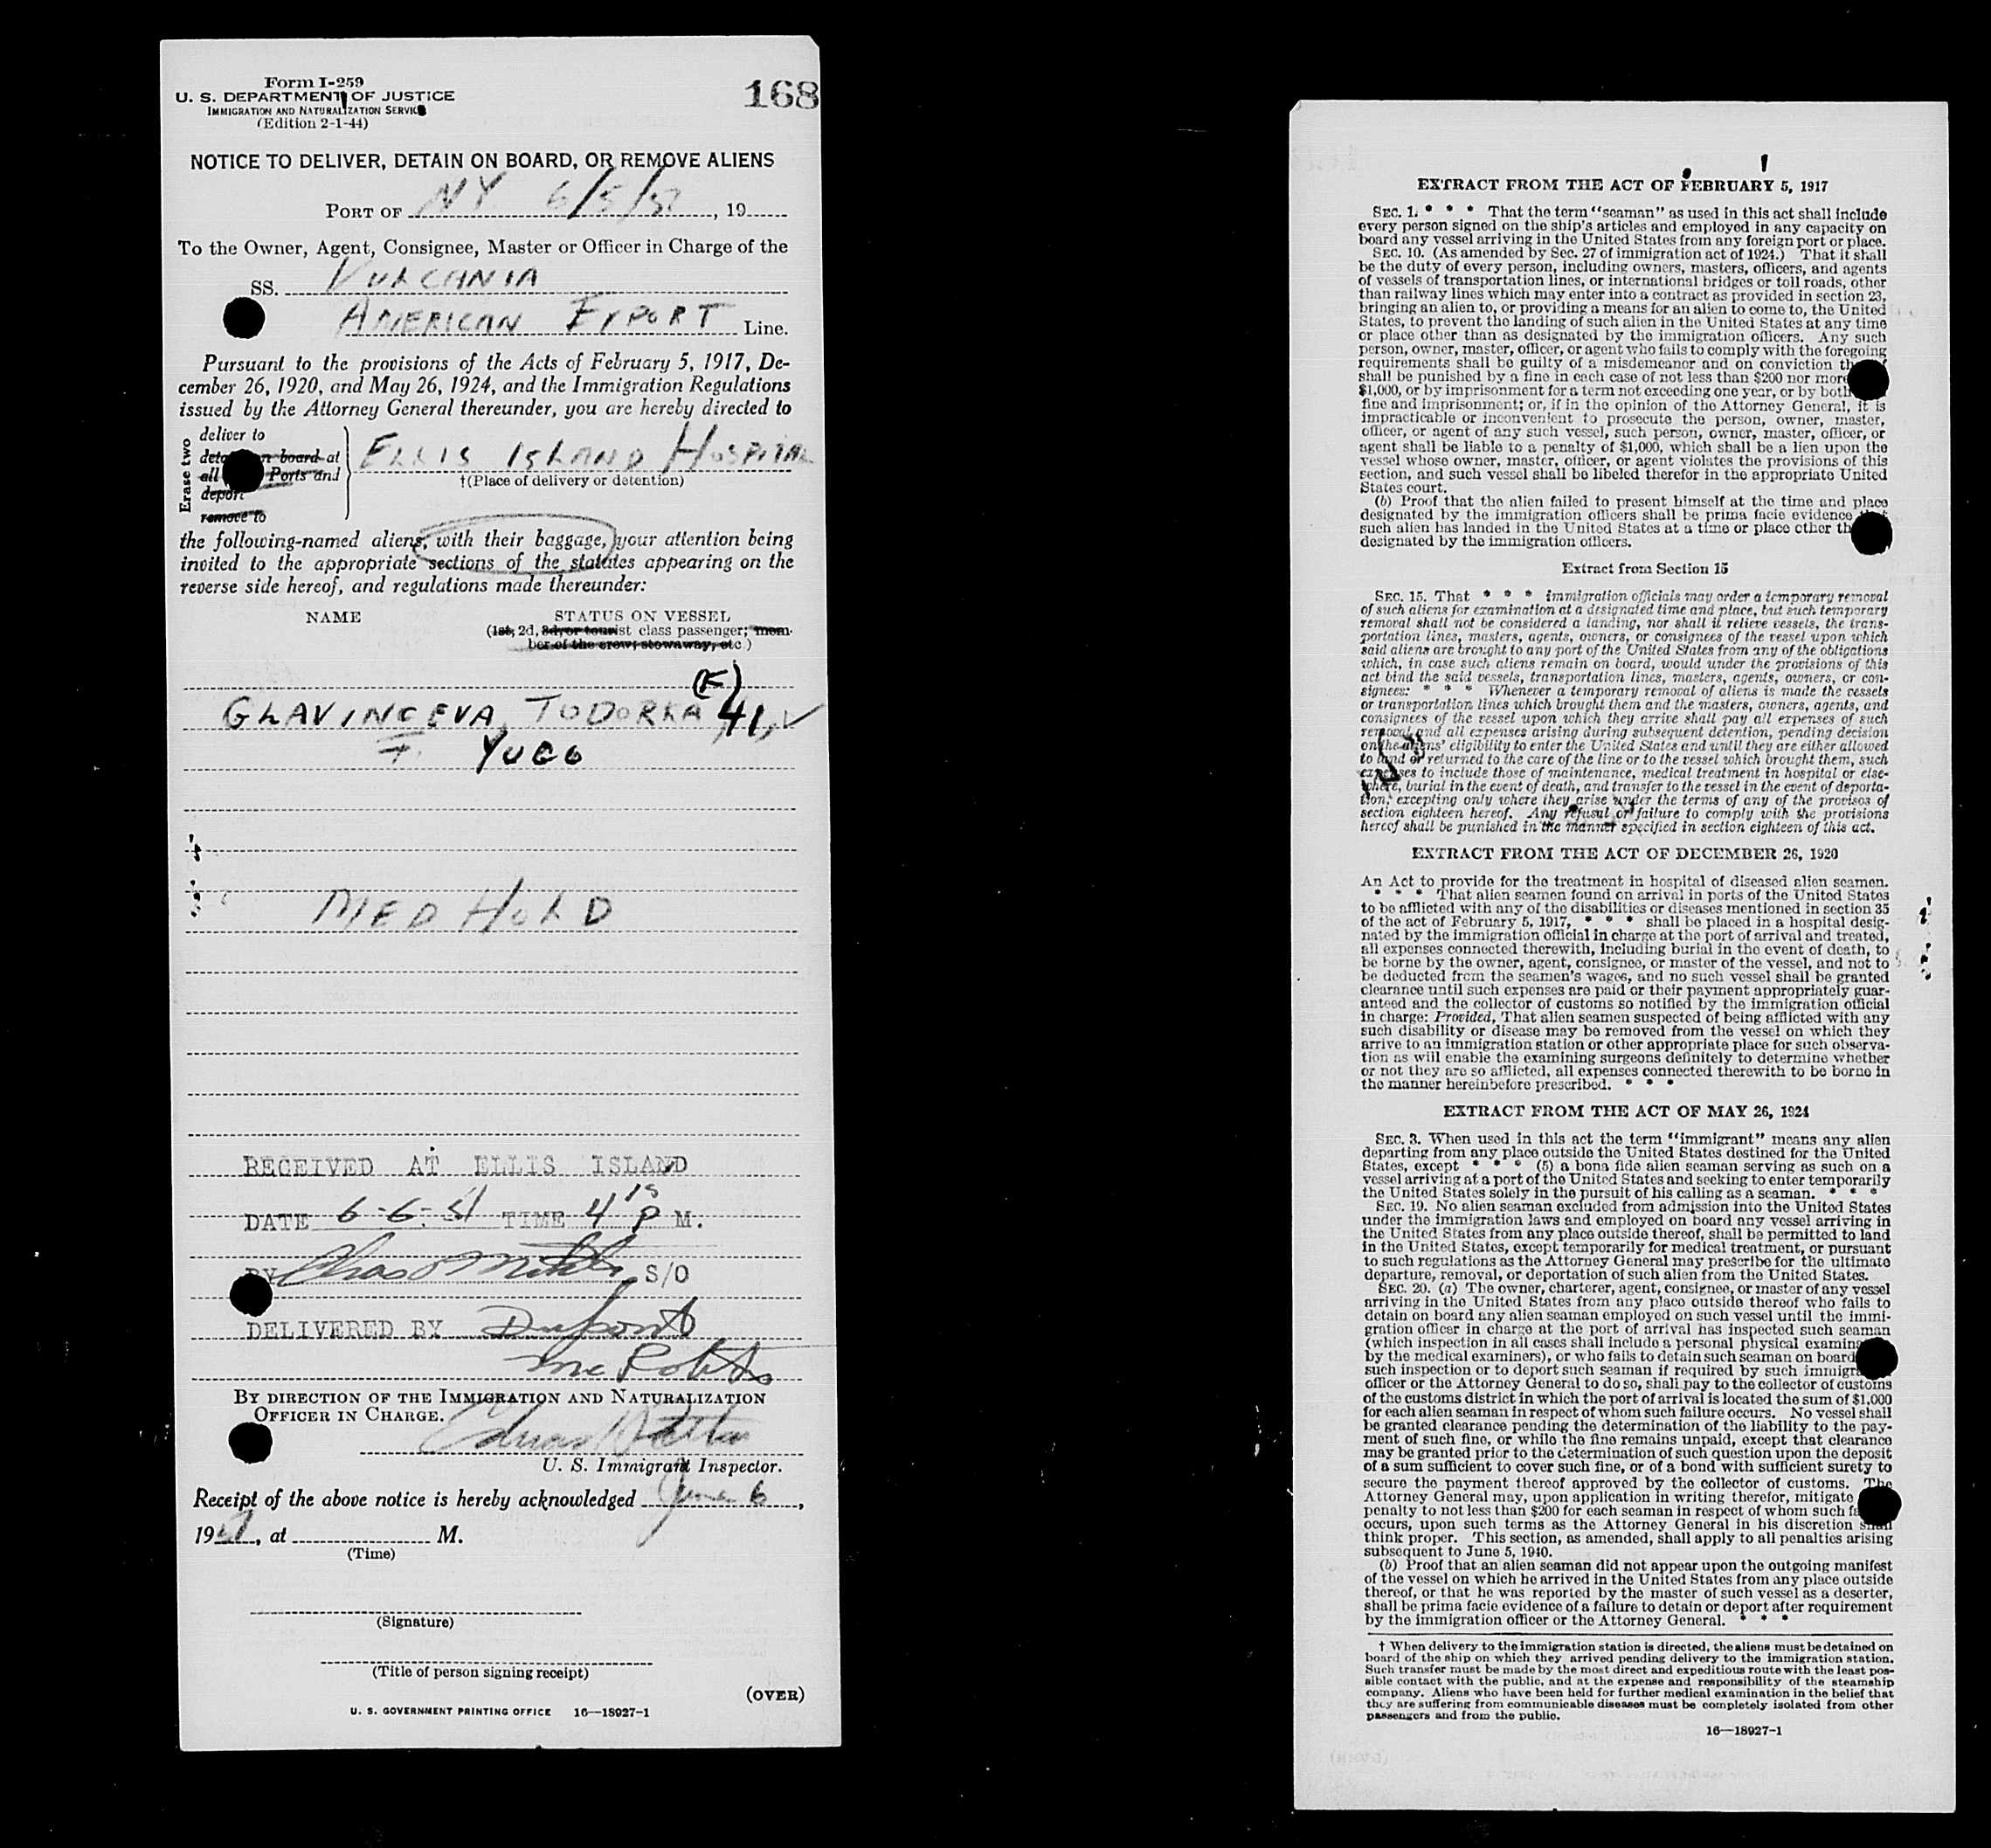 Form I-259
U. S. DEPARTMENT OF JUSTICE
IMMIGRATION AND NATURALIZATION SERVICE
(Edition 2-1-44)
168
NOTICE TO DELIVER, DETAIN ON BOARD, OR REMOVE ALIENS
PORT OF NY 6/5/51, 19
To the Owner, Agent, Consignee, Master or Officer in Charge of the
SS. VULCANIA
AMERICAN EXPORT Line.
Pursuant to the provisions of the Acts of February 5, 1917, De-
cember 26, 1920, and May 26, 1924, and the Immigration Regulations
issued by the Attorney General thereunder, you are hereby directed to
Erase two
deliver to
on board at
all Ports and
deport
remove to
ELLIS ISLAND HOSPITAL
†(Place of delivery or detention)
the following-named aliens, with their baggage, your attention being
invited to the appropriate sections of the statutes appearing on the
reverse side hereof, and regulations made thereunder:
NAME STATUS ON VESSEL
(1st, 2d, 3d, or tourist class passenger; mem-
ber of the crew; stowaway, etc.)
(F)
GLAVINCEVA, TODORKA, 41, ✓
F. YUGO
MED HOLD
RECEIVED AT ELLIS ISLAND
DATE 6-6-51 TIME 4 15 P M.
BY S/O
DELIVERED BY Dupont
BY DIRECTION OF THE IMMIGRATION AND NATURALIZATION
OFFICER IN CHARGE.
U. S. Immigrant Inspector.
Receipt of the above notice is hereby acknowledged June 6,
1951, at M.
(Time)
(Signature)
(Title of person signing receipt)
(OVER)
U. S. GOVERNMENT PRINTING OFFICE 16—18927-1
EXTRACT FROM THE ACT OF FEBRUARY 5, 1917
SEC. 1. * * * That the term "seaman" as used in this act shall include
every person signed on the ship's articles and employed in any capacity on
board any vessel arriving in the United States from any foreign port or place.
SEC. 10. (As amended by Sec. 27 of immigration act of 1924.) That it shall
be the duty of every person, including owners, masters, officers, and agents
of vessels of transportation lines, or international bridges or toll roads, other
than railway lines which may enter into a contract as provided in section 23,
bringing an alien to, or providing a means for an alien to come to, the United
States, to prevent the landing of such alien in the United States at any time
or place other than as designated by the immigration officers. Any such
person, owner, master, officer, or agent who fails to comply with the foregoing
requirements shall be guilty of a misdemeanor and on conviction
shall be punished by a fine in each case of not less than $200 nor more
$1,000, or by imprisonment for a term not exceeding one year, or by both
fine and imprisonment; or, if in the opinion of the Attorney General, it is
impracticable or inconvenient to prosecute the person, owner, master,
officer, or agent of any such vessel, such person, owner, master, officer, or
agent shall be liable to a penalty of $1,000, which shall be a lien upon the
vessel whose owner, master, officer, or agent violates the provisions of this
section, and such vessel shall be libeled therefor in the appropriate United
States court.
(b) Proof that the alien failed to present himself at the time and place
designated by the immigration officers shall be prima facie evidence that
such alien has landed in the United States at a time or place other
designated by the immigration officers.
Extract from Section 15
SEC. 15. That * * * immigration officials may order a temporary removal
of such aliens for examination at a designated time and place, but such temporary
removal shall not be considered a landing, nor shall it relieve vessels, the trans-
portation lines, masters, agents, owners, or consignees of the vessel upon which
said aliens are brought to any port of the United States from any of the obligations
which, in case such aliens remain on board, would under the provisions of this
act bind the said vessels, transportation lines, masters, agents, owners, or con-
signees: * * * Whenever a temporary removal of aliens is made the vessels
or transportation lines which brought them and the masters, owners, agents, and
consignees of the vessel upon which they arrive shall pay all expenses of such
removal and all expenses arising during subsequent detention, pending decision
on the aliens' eligibility to enter the United States and until they are either allowed
to land or returned to the care of the line or to the vessel which brought them, such
expenses to include those of maintenance, medical treatment in hospital or else-
where, burial in the event of death, and transfer to the vessel in the event of deporta-
tion, excepting only where they arise under the terms of any of the provisos of
section eighteen hereof. Any refusal or failure to comply with the provisions
hereof shall be punished in the manner specified in section eighteen of this act.
EXTRACT FROM THE ACT OF DECEMBER 26, 1920
An Act to provide for the treatment in hospital of diseased alien seamen.
* * * That alien seamen found on arrival in ports of the United States
to be afflicted with any of the disabilities or diseases mentioned in section 35
of the act of February 5, 1917, * * * shall be placed in a hospital desig-
nated by the immigration official in charge at the port of arrival and treated,
all expenses connected therewith, including burial in the event of death, to
be borne by the owner, agent, consignee, or master of the vessel, and not to
be deducted from the seamen's wages, and no such vessel shall be granted
clearance until such expenses are paid or their payment appropriately guar-
anteed and the collector of customs so notified by the immigration official
in charge: Provided, That alien seamen suspected of being afflicted with any
such disability or disease may be removed from the vessel on which they
arrive to an immigration station or other appropriate place for such observa-
tion as will enable the examining surgeons definitely to determine whether
or not they are so afflicted, all expenses connected therewith to be borne in
the manner hereinbefore prescribed. * * *
EXTRACT FROM THE ACT OF MAY 26, 1924
SEC. 3. When used in this act the term "immigrant" means any alien
departing from any place outside the United States destined for the United
States, except * * * (5) a bona fide alien seaman serving as such on a
vessel arriving at a port of the United States and seeking to enter temporarily
the United States solely in the pursuit of his calling as a seaman. * * *
SEC. 19. No alien seaman excluded from admission into the United States
under the immigration laws and employed on board any vessel arriving in
the United States from any place outside thereof, shall be permitted to land
in the United States, except temporarily for medical treatment, or pursuant
to such regulations as the Attorney General may prescribe for the ultimate
departure, removal, or deportation of such alien from the United States.
SEC. 20. (a) The owner, charterer, agent, consignee, or master of any vessel
arriving in the United States from any place outside thereof who fails to
detain on board any alien seaman employed on such vessel until the immi-
gration officer in charge at the port of arrival has inspected such seaman
(which inspection in all cases shall include a personal physical
by the medical examiners), or who fails to detain such seaman on board
such inspection or to deport such seaman if required by such
officer or the Attorney General to do so, shall pay to the collector of customs
of the customs district in which the port of arrival is located the sum of $1,000
for each alien seaman in respect of whom such failure occurs. No vessel shall
be granted clearance pending the determination of the liability to the pay-
ment of such fine, or while the fine remains unpaid, except that clearance
may be granted prior to the determination of such question upon the deposit
of a sum sufficient to cover such fine, or of a bond with sufficient surety to
secure the payment thereof approved by the collector of customs. The
Attorney General may, upon application in writing therefor, mitigate
penalty to not less than $200 for each seaman in respect of whom such
occurs, upon such terms as the Attorney General in his discretion shall
think proper. This section, as amended, shall apply to all penalties arising
subsequent to June 5, 1940.
(b) Proof that an alien seaman did not appear upon the outgoing manifest
of the vessel on which he arrived in the United States from any place outside
thereof, or that he was reported by the master of such vessel as a deserter,
shall be prima facie evidence of a failure to detain or deport after requirement
by the immigration officer or the Attorney General. * * *
† When delivery to the immigration station is directed, the aliens must be detained on
board of the ship on which they arrived pending delivery to the immigration station.
Such transfer must be made by the most direct and expeditious route with the least pos-
sible contact with the public, and at the expense and responsibility of the steamship
company. Aliens who have been held for further medical examination in the belief that
they are suffering from communicable diseases must be completely isolated from other
passengers and from the public.
16—18927-1